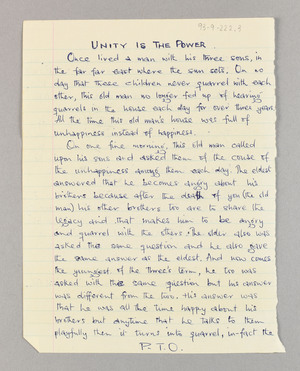 93-9-222-3
UNITY IS THE POWER
Once lived a man with his three sons, in
the far far east where the sun sets. On no
day that these children never quarrel with each
other, this old man no longer fed up of hearing
quarrels in the house each day for over three years.
All the time this old man's house was full of
unhappiness instead of happiness.
On one fine morning, this old man called
upon his sons and asked them of the cause of
the unhappiness among them each day. The eldest
answered that he becomes angry about his
brothers because after the death of you (the old
man) his other brothers too are to share the
legacy and that makes him to be angry
and quarrel with the others. The elder also was
asked the same question and he also gave
the same answer as the eldest. And now comes
the youngest of the three's term, he too was
asked with the same question but his answer
was different from the two. His answer was
that he was all the time happy about his
brothers but anytime that he talks to them
playfully then it turns into quarrel, in-fact the
P.T.O.